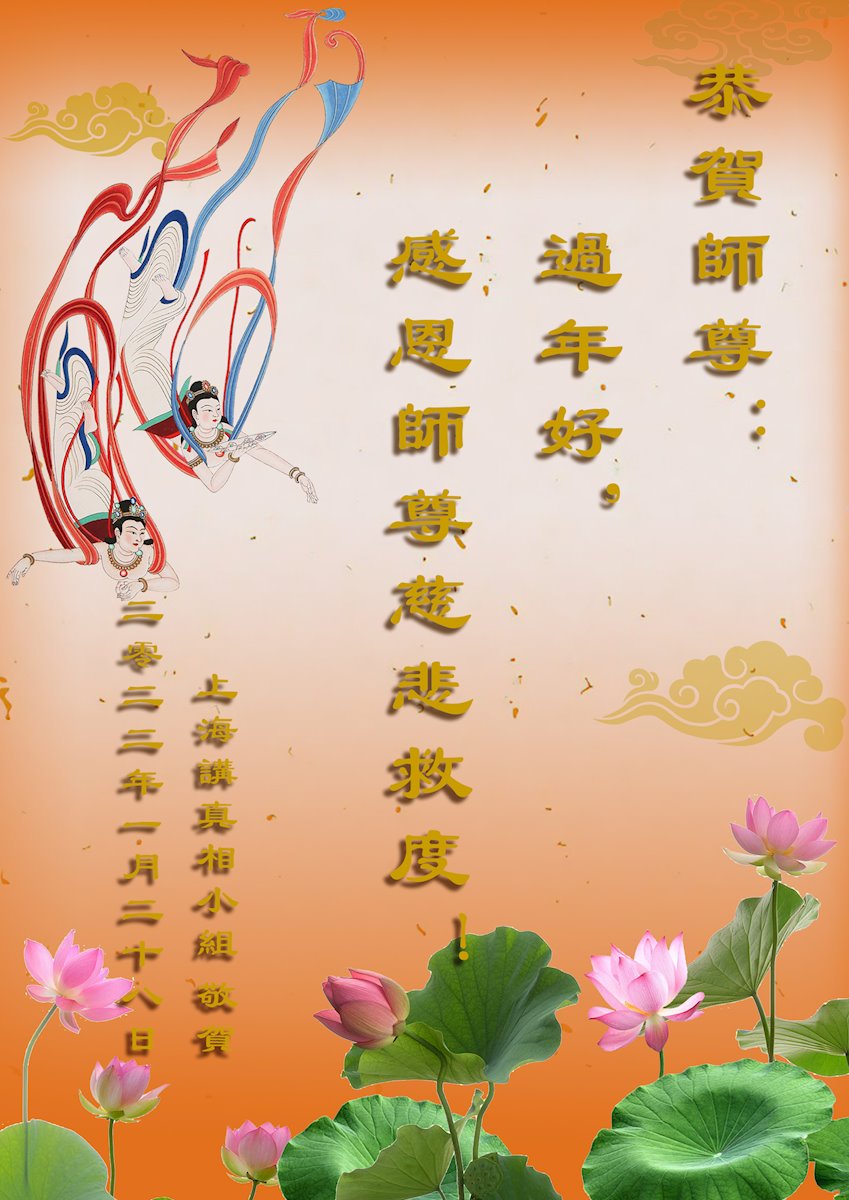 恭賀師尊：
過年好，
感恩師尊慈悲救度！
上海講真相小組 敬賀
二零二二年一月二十八日